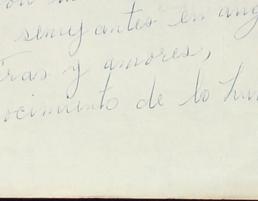 semejantes en ang
tras y amores,
ocimiento de lo hu